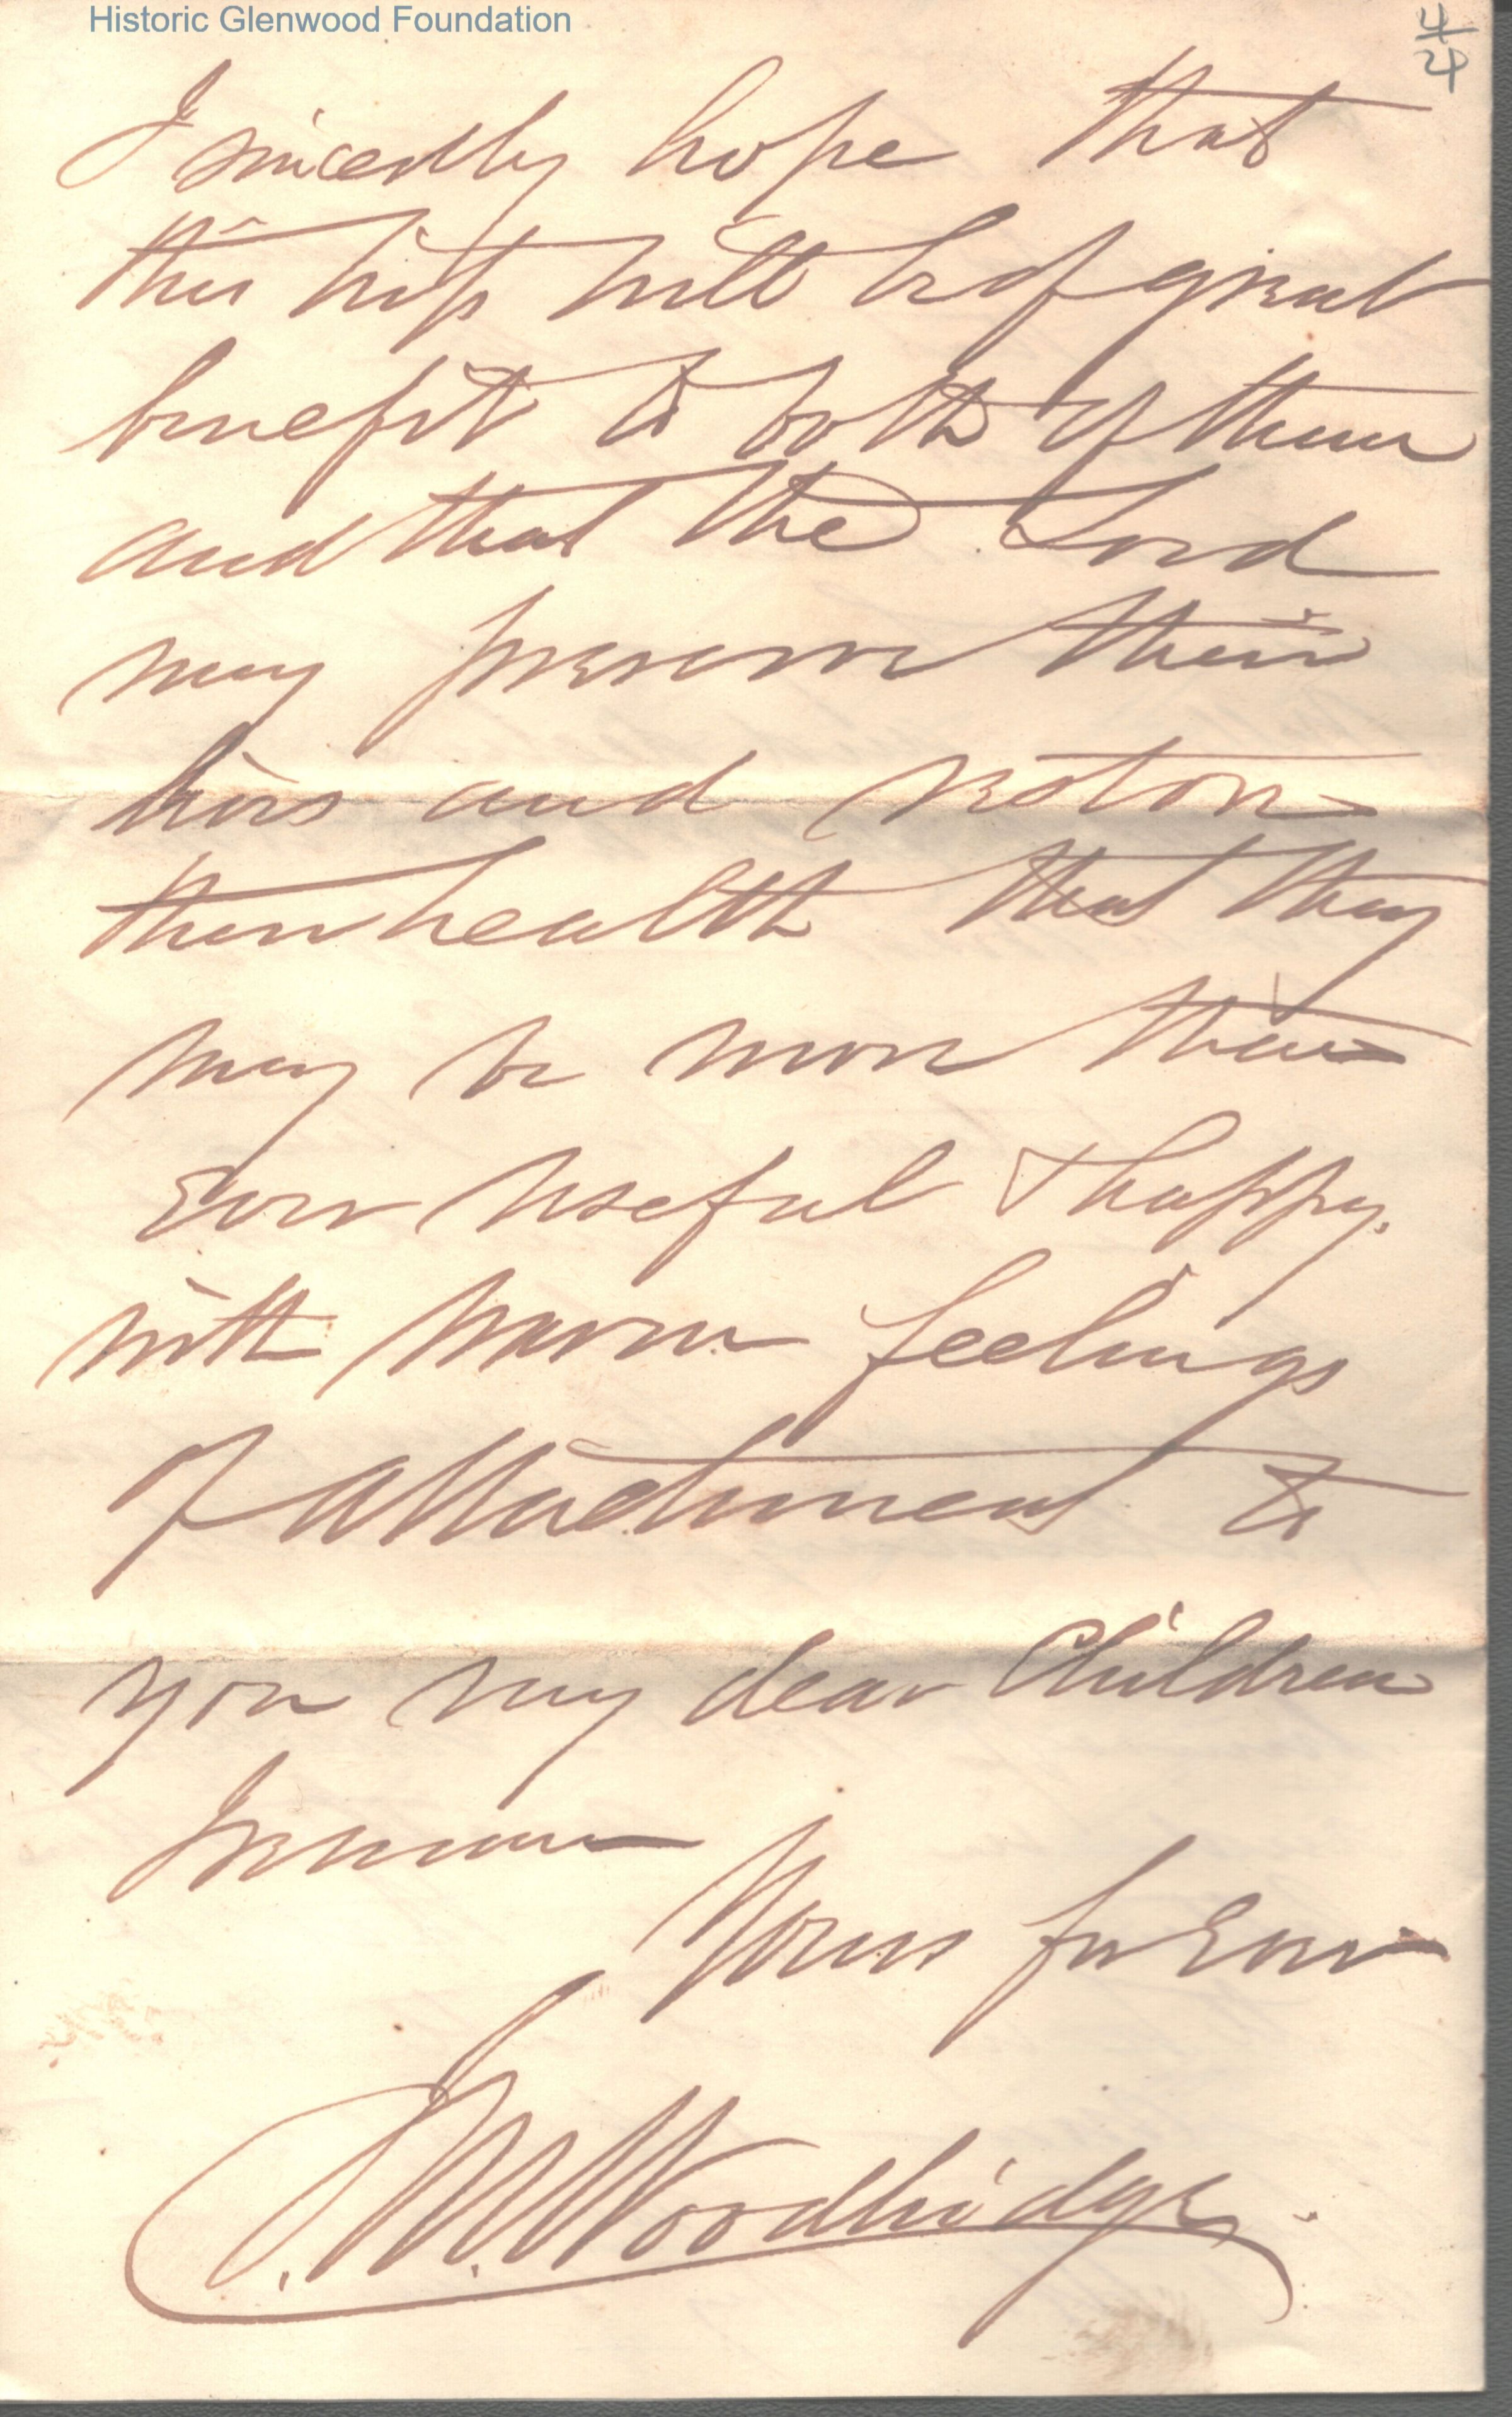 Historic Glenwood Foundation
4/4
I sincerely hope that
this trip will be of great
benefit to both of them
and that the Lord
may preserve their
lives and restore
their health that they
may be more than
ever useful & happy.
with warm feelings
of attachment to
you my dear Children
I remain
Yours for Ever
S. M. Woodbridge.